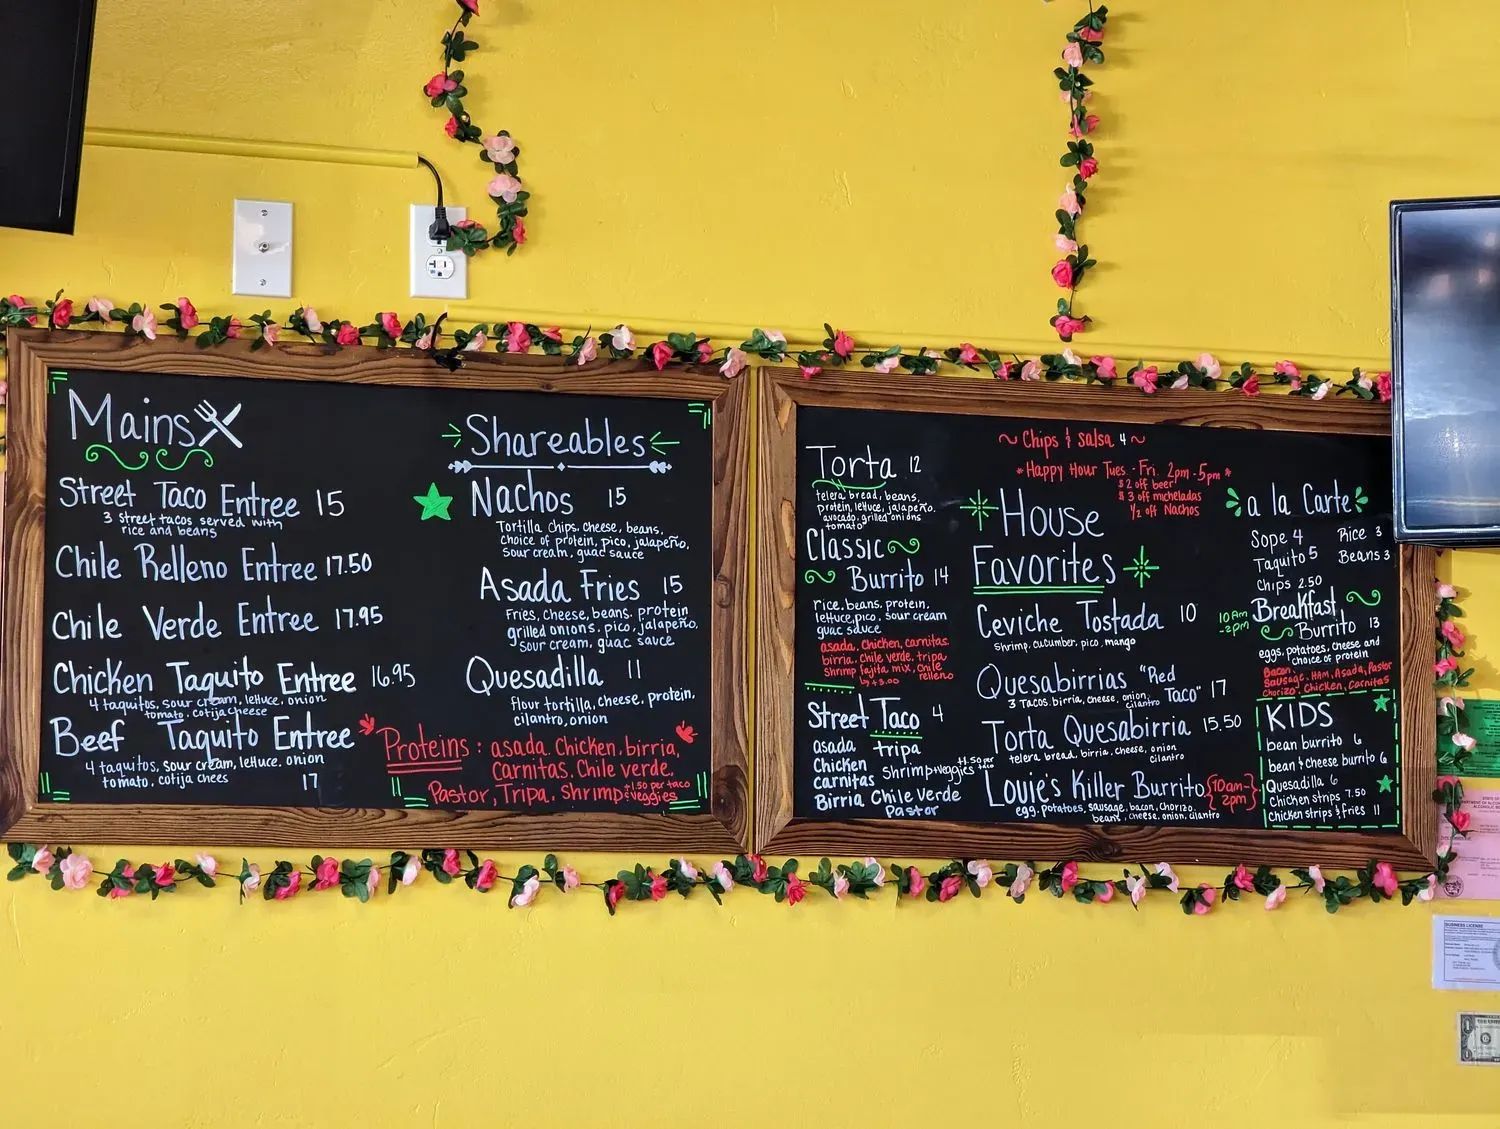 Mains
Street Taco Entree 15
3 street tacos served with
rice and beans
Chile Relleno Entree 17.50
Chile Verde Entree 17.95
Chicken Taquito Entree 16.95
4 taquitos, sour cream, lettuce, onion
tomato, cotija cheese
Beef Taquito Entree
4 taquitos, sour cream, lettuce, onion
tomato, cotija chees
17
Shareables
Nachos 15
Tortilla chips, cheese, beans,
choice of protein, pico, jalapeño,
sour cream, guac sauce
Asada Fries 15
Fries, cheese, beans, protein
grilled onions, pico, jalapeño,
sour cream, guac sauce
Quesadilla 11
flour tortilla, cheese, protein,
cilantro, onion
Proteins: asada, Chicken, birria,
Carnitas, Chile verde,
Pastor, Tripa, Shrimp+veggies
+1.50 per taco
Torta 12
telera bread, beans,
protein, lettuce, jalapeño,
avocado, grilled onions
tomato
Classic
Burrito 14
rice, beans, protein,
lettuce, pico, sour cream
guac sauce
asada, Chicken, carnitas,
birria, chile verde, tripa
Shrimp fajita mix, chile
relleno
by +3.00
Street Taco 4
asada
Chicken
carnitas
Birria
tripa
Shrimp+veggies
+1.50 per
taco
Chile verde
Pastor
~ Chips & Salsa 4 ~
*Happy Hour Tues. - Fri. 2pm - 5pm *
$2 off beer
$3 off micheladas
1/2 off Nachos
House
Favorites
Ceviche Tostada 10
shrimp, cucumber, pico, mango
Quesabirrias "Red
Taco" 17
3 Tacos, birria, cheese, onion,
cilantro
Torta Quesabirria 15.50
telera bread, birria, cheese, onion
cilantro
Louie's Killer Burrito {10am-
2pm}
egg, potatoes, sausage, bacon, chorizo,
beans, cheese, onion, cilantro
a la Carte
Sope 4
Taquito 5
Chips 2.50
Rice 3
Beans 3
10am
-2pm
Breakfast
Burrito 13
eggs, potatoes, cheese and
choice of protein
Bacon,
Sausage, HAM, Asada, Pastor
Chorizo, Chicken, Carnitas
KIDS
bean burrito 6
bean & cheese burrito 6
Quesadilla 6
Chicken strips 7.50
Chicken strips & fries 11
BUSINESS LICENSE